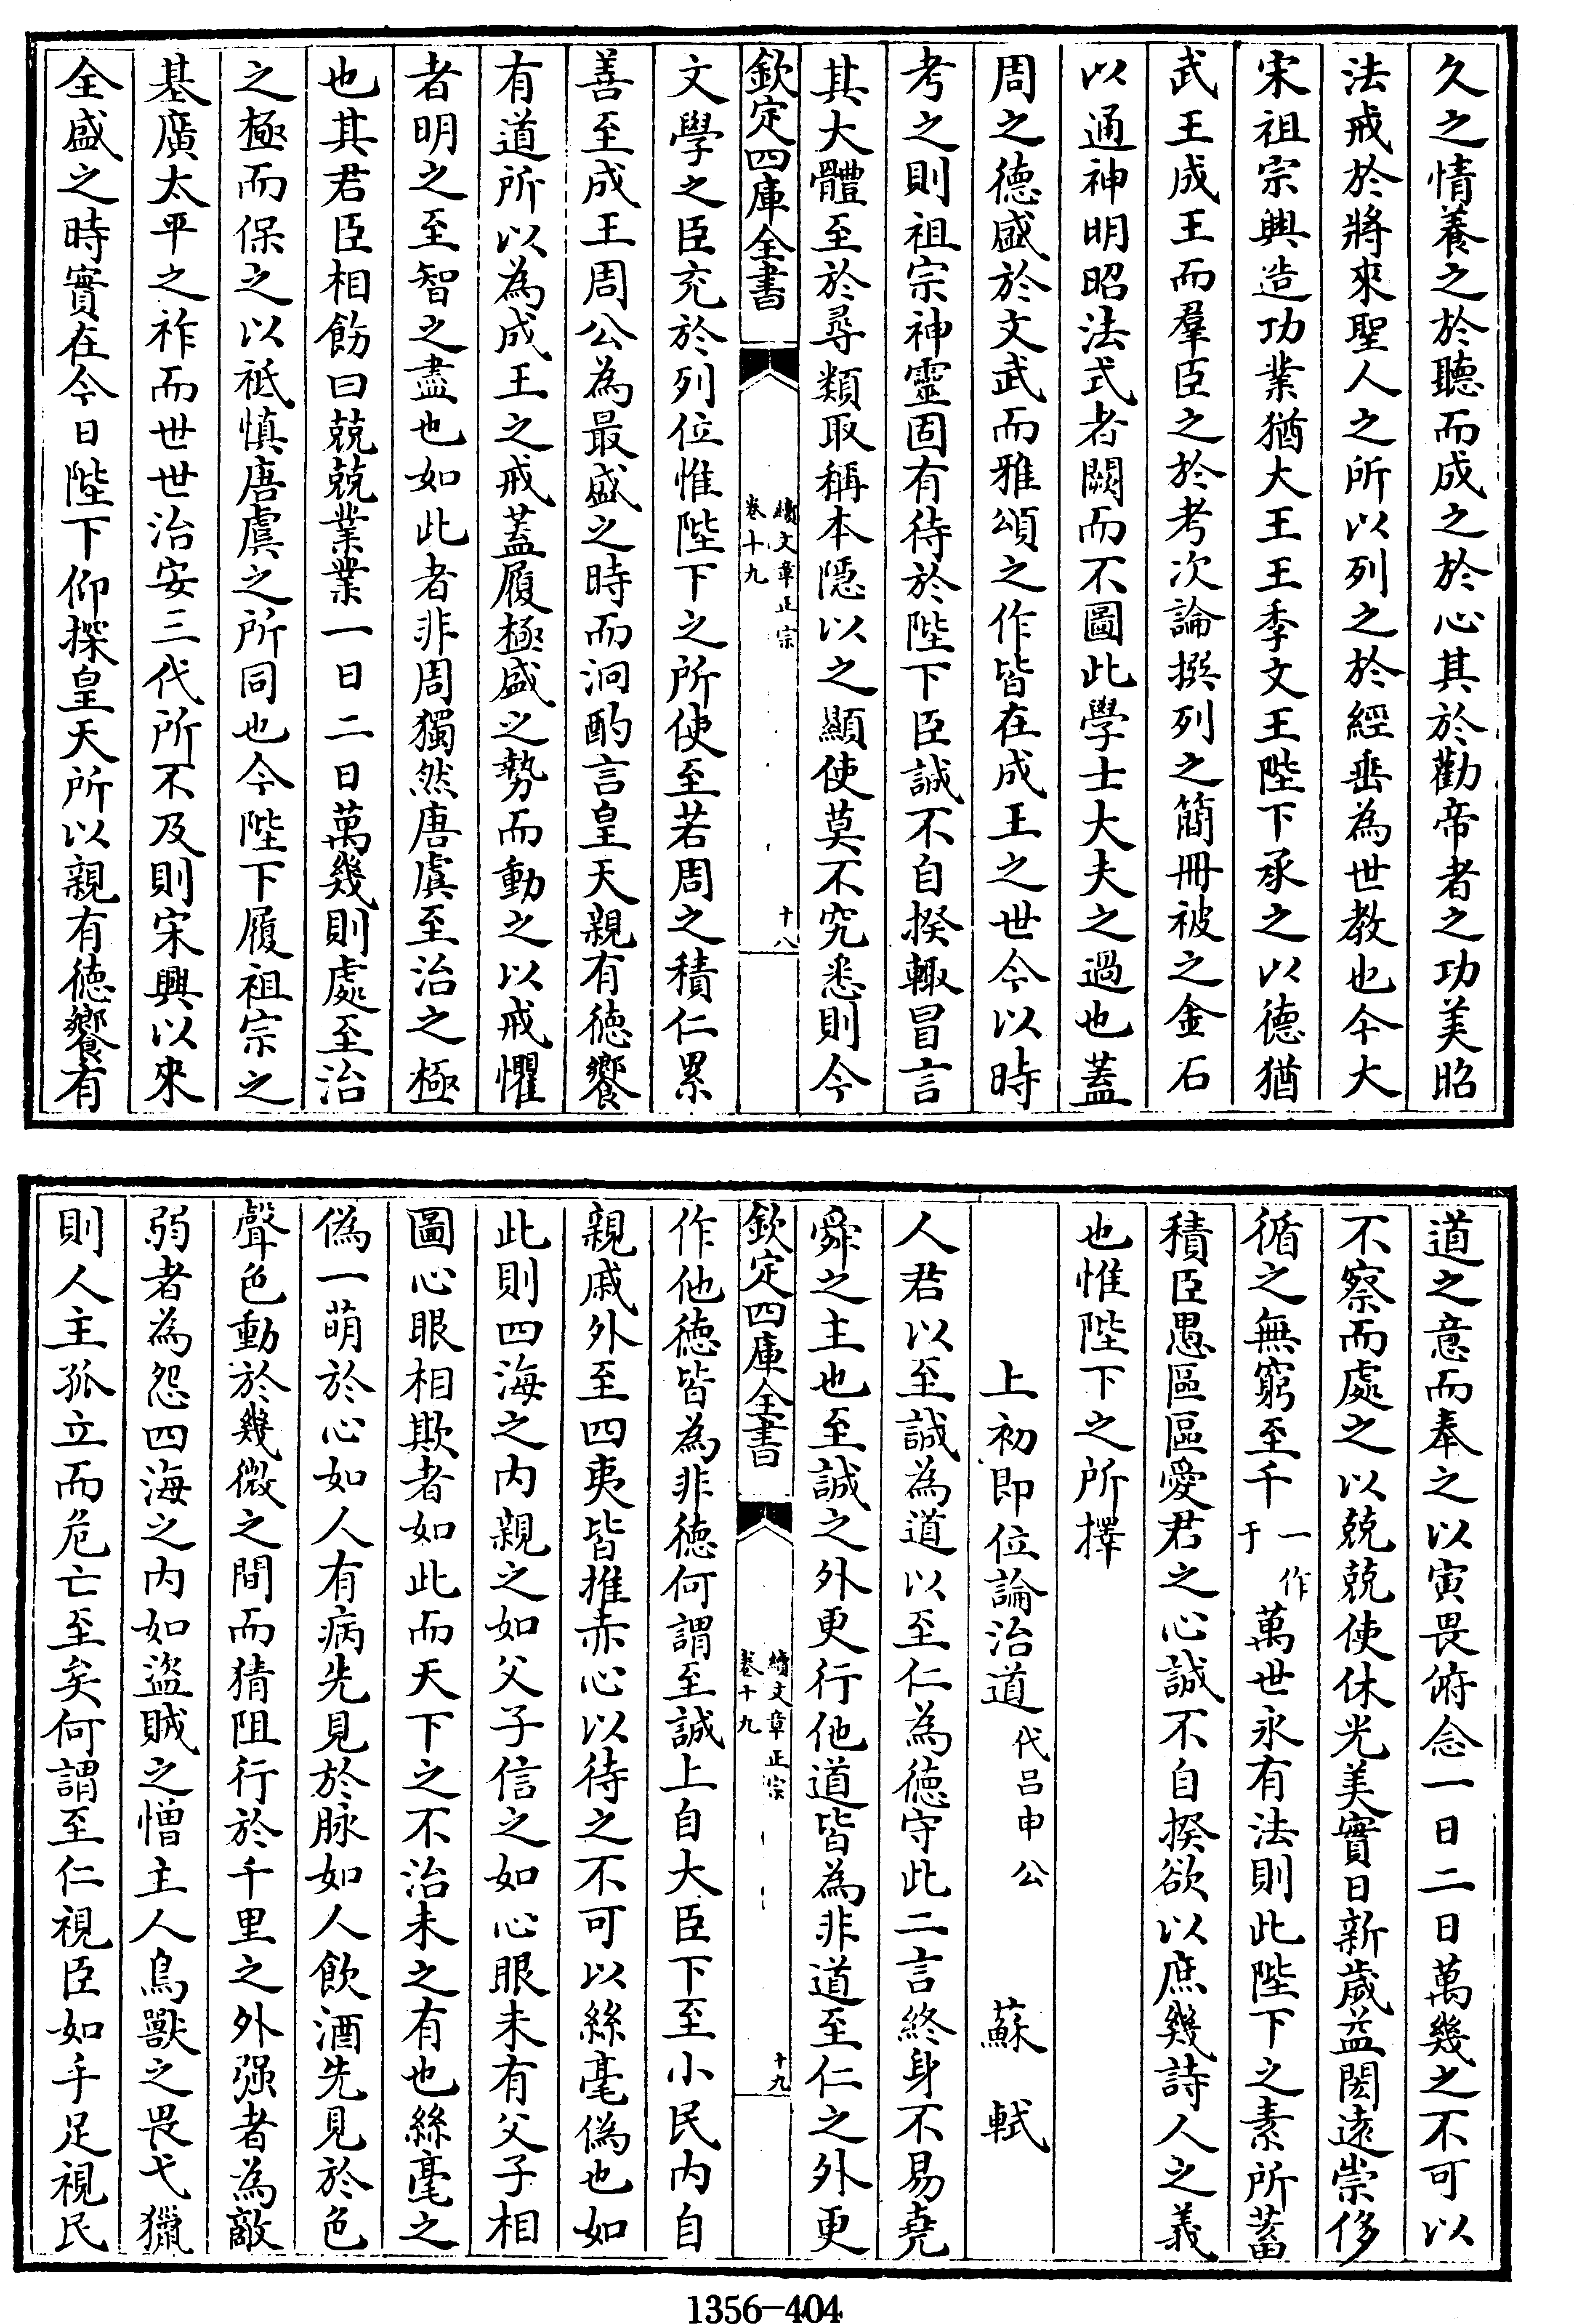 久之情養之於聽而成之於心其於勸帝者之功美昭
法戒於將來聖人之所以列之於經垂為世教也今大
宋祖宗興造功業猶大王王季文王陛下承之以德猶
武王成王而羣臣之於考次論撰列之簡冊被之金石
以通神明昭法式者闕而不圖此學士大夫之過也蓋
周之德盛於文武而雅頌之作皆在成王之世今以時
考之則祖宗神靈固有待於陛下臣誠不自揆輙冒言
其大體至於尋類取稱本隱以之顯使莫不究悉則今
欽定四庫全書
續文章正宗
卷十九
十八
文學之臣充於列位惟陛下之所使至若周之積仁累
善至成王周公為最盛之時而泂酌言皇天親有徳饗
有道所以為成王之戒蓋履極盛之勢而動之以戒懼
者明之至智之盡也如此者非周獨然唐虞至治之極
也其君臣相飭曰兢兢業業一日二日萬幾則處至治
之極而保之以祗慎唐虞之所同也今陛下履祖宗之
基廣太平之祚而世世治安三代所不及則宋興以來
全盛之時實在今日陛下仰探皇天所以親有徳饗有
道之意而奉之以寅畏俯念一日二日萬幾之不可以
不察而處之以兢兢使休光美實日新歲益閎遠崇侈
循之無窮至千一作于萬世永有法則此陛下之素所蓄
積臣愚區區愛君之心誠不自揆欲以庶幾詩人之義
也惟陛下之所擇
上初即位論治道代呂申公 蘇軾
人君以至誠為道以至仁為徳守此二言終身不易堯
舜之主也至誠之外更行他道皆為非道至仁之外更
欽定四庫全書
續文章正宗
卷十九
十九
作他徳皆為非徳何謂至誠上自大臣下至小民内自
親戚外至四夷皆推赤心以待之不可以絲毫偽也如
此則四海之内親之如父子信之如心眼未有父子相
圖心眼相欺者如此而天下之不治未之有也絲毫之
偽一萌於心如人有病先見於脉如人飲酒先見於色
聲色動於幾微之間而猜阻行於千里之外强者為敵
弱者為怨四海之内如盜賊之憎主人鳥獸之畏弋獵
則人主孤立而危亡至矣何謂至仁視臣如手足視民
1356—404